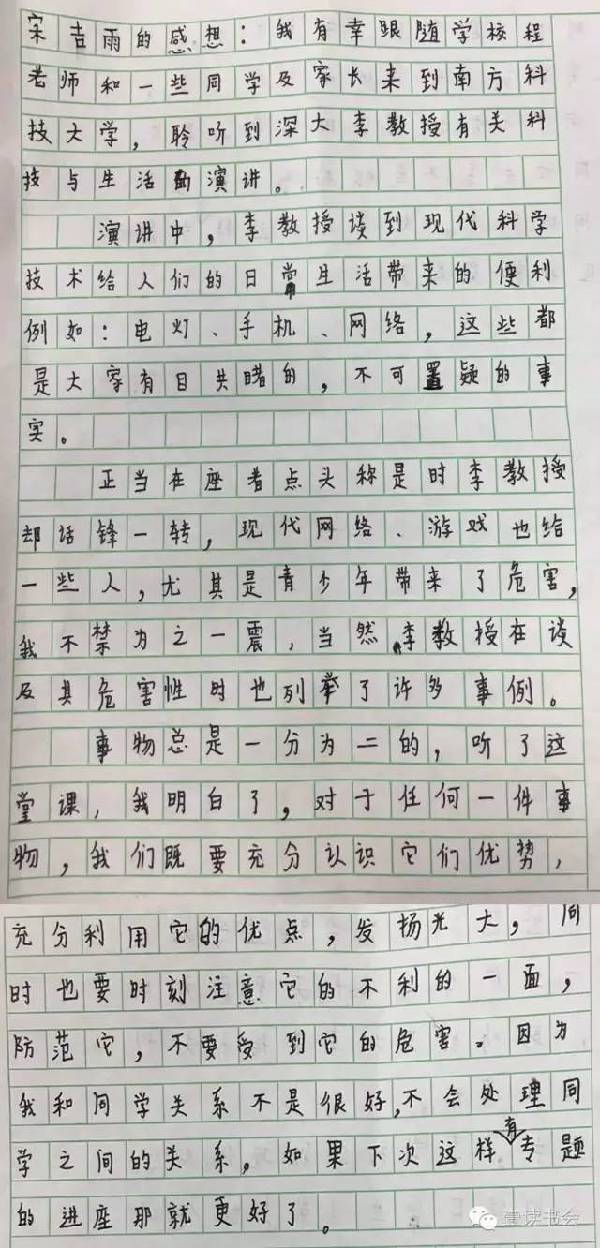 宋吉雨的感想：我有幸跟随学校程
老师和一些同学及家长来到南方科
技大学，聆听到深大李教授有关科
技与生活的演讲。
演讲中，李教授谈到现代科学
技术给人们的日常生活带来的便利
例如：电灯、手机、网络，这些都
是大家有目共睹的，不可置疑的事
实。
正当在座者点头称是时李教授
却话锋一转，现代网络、游戏也给
一些人，尤其是青少年带来了危害，
我不禁为之一震，当然，李教授在谈
及其危害性时也列举了许多事例。
事物总是一分为二的，听了这
堂课，我明白了，对于任何一件事
物，我们既要充分认识它们优势，
充分利用它的优点，发扬光大，同
时也要时刻注意它的不利的一面，
防范它，不要受到它的危害。因为
我和同学关系不是很好，不会处理同
学之间的关系，如果下次这样有专题
的进座那就更好了。
壹读书会